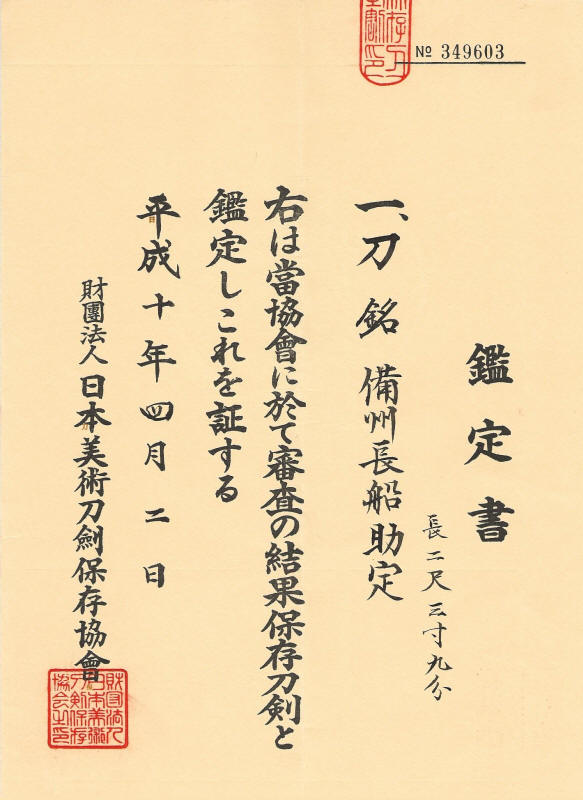 № 349603
鑑定書
一、刀 銘 備州長船助定
長二尺三寸九分
右は當協會に於て審査の結果保存刀剣と
鑑定しこれを証する
平成十年四月二日
財團法人 日本美術刀劍保存協會
財団法人
日本美術
刀剣保存
協会之印